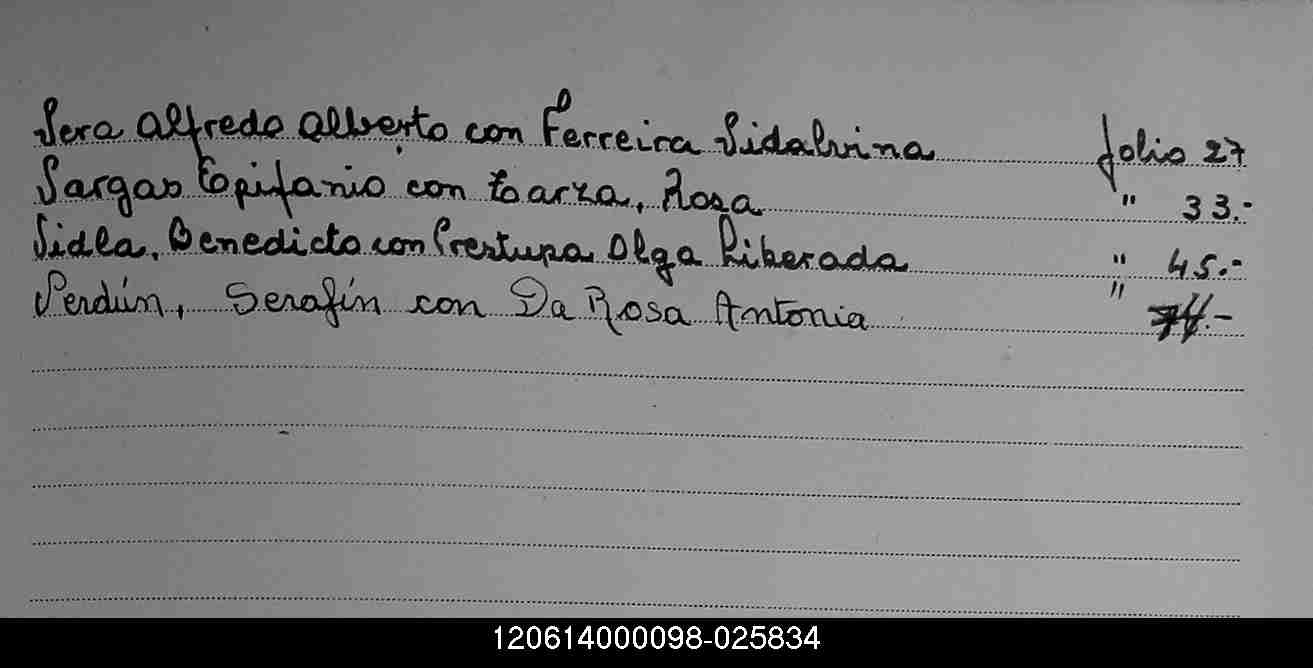 Vera Alfredo Alberto con Ferreira Vidalvina folio 27
Vargas Epifanio con Zarza, Rosa " 33.-
Vidla, Benedicto con Prestupa Olga Liberada " 45.-
Verdún, Serafín con Da Rosa Antonia "
120614000098-025834